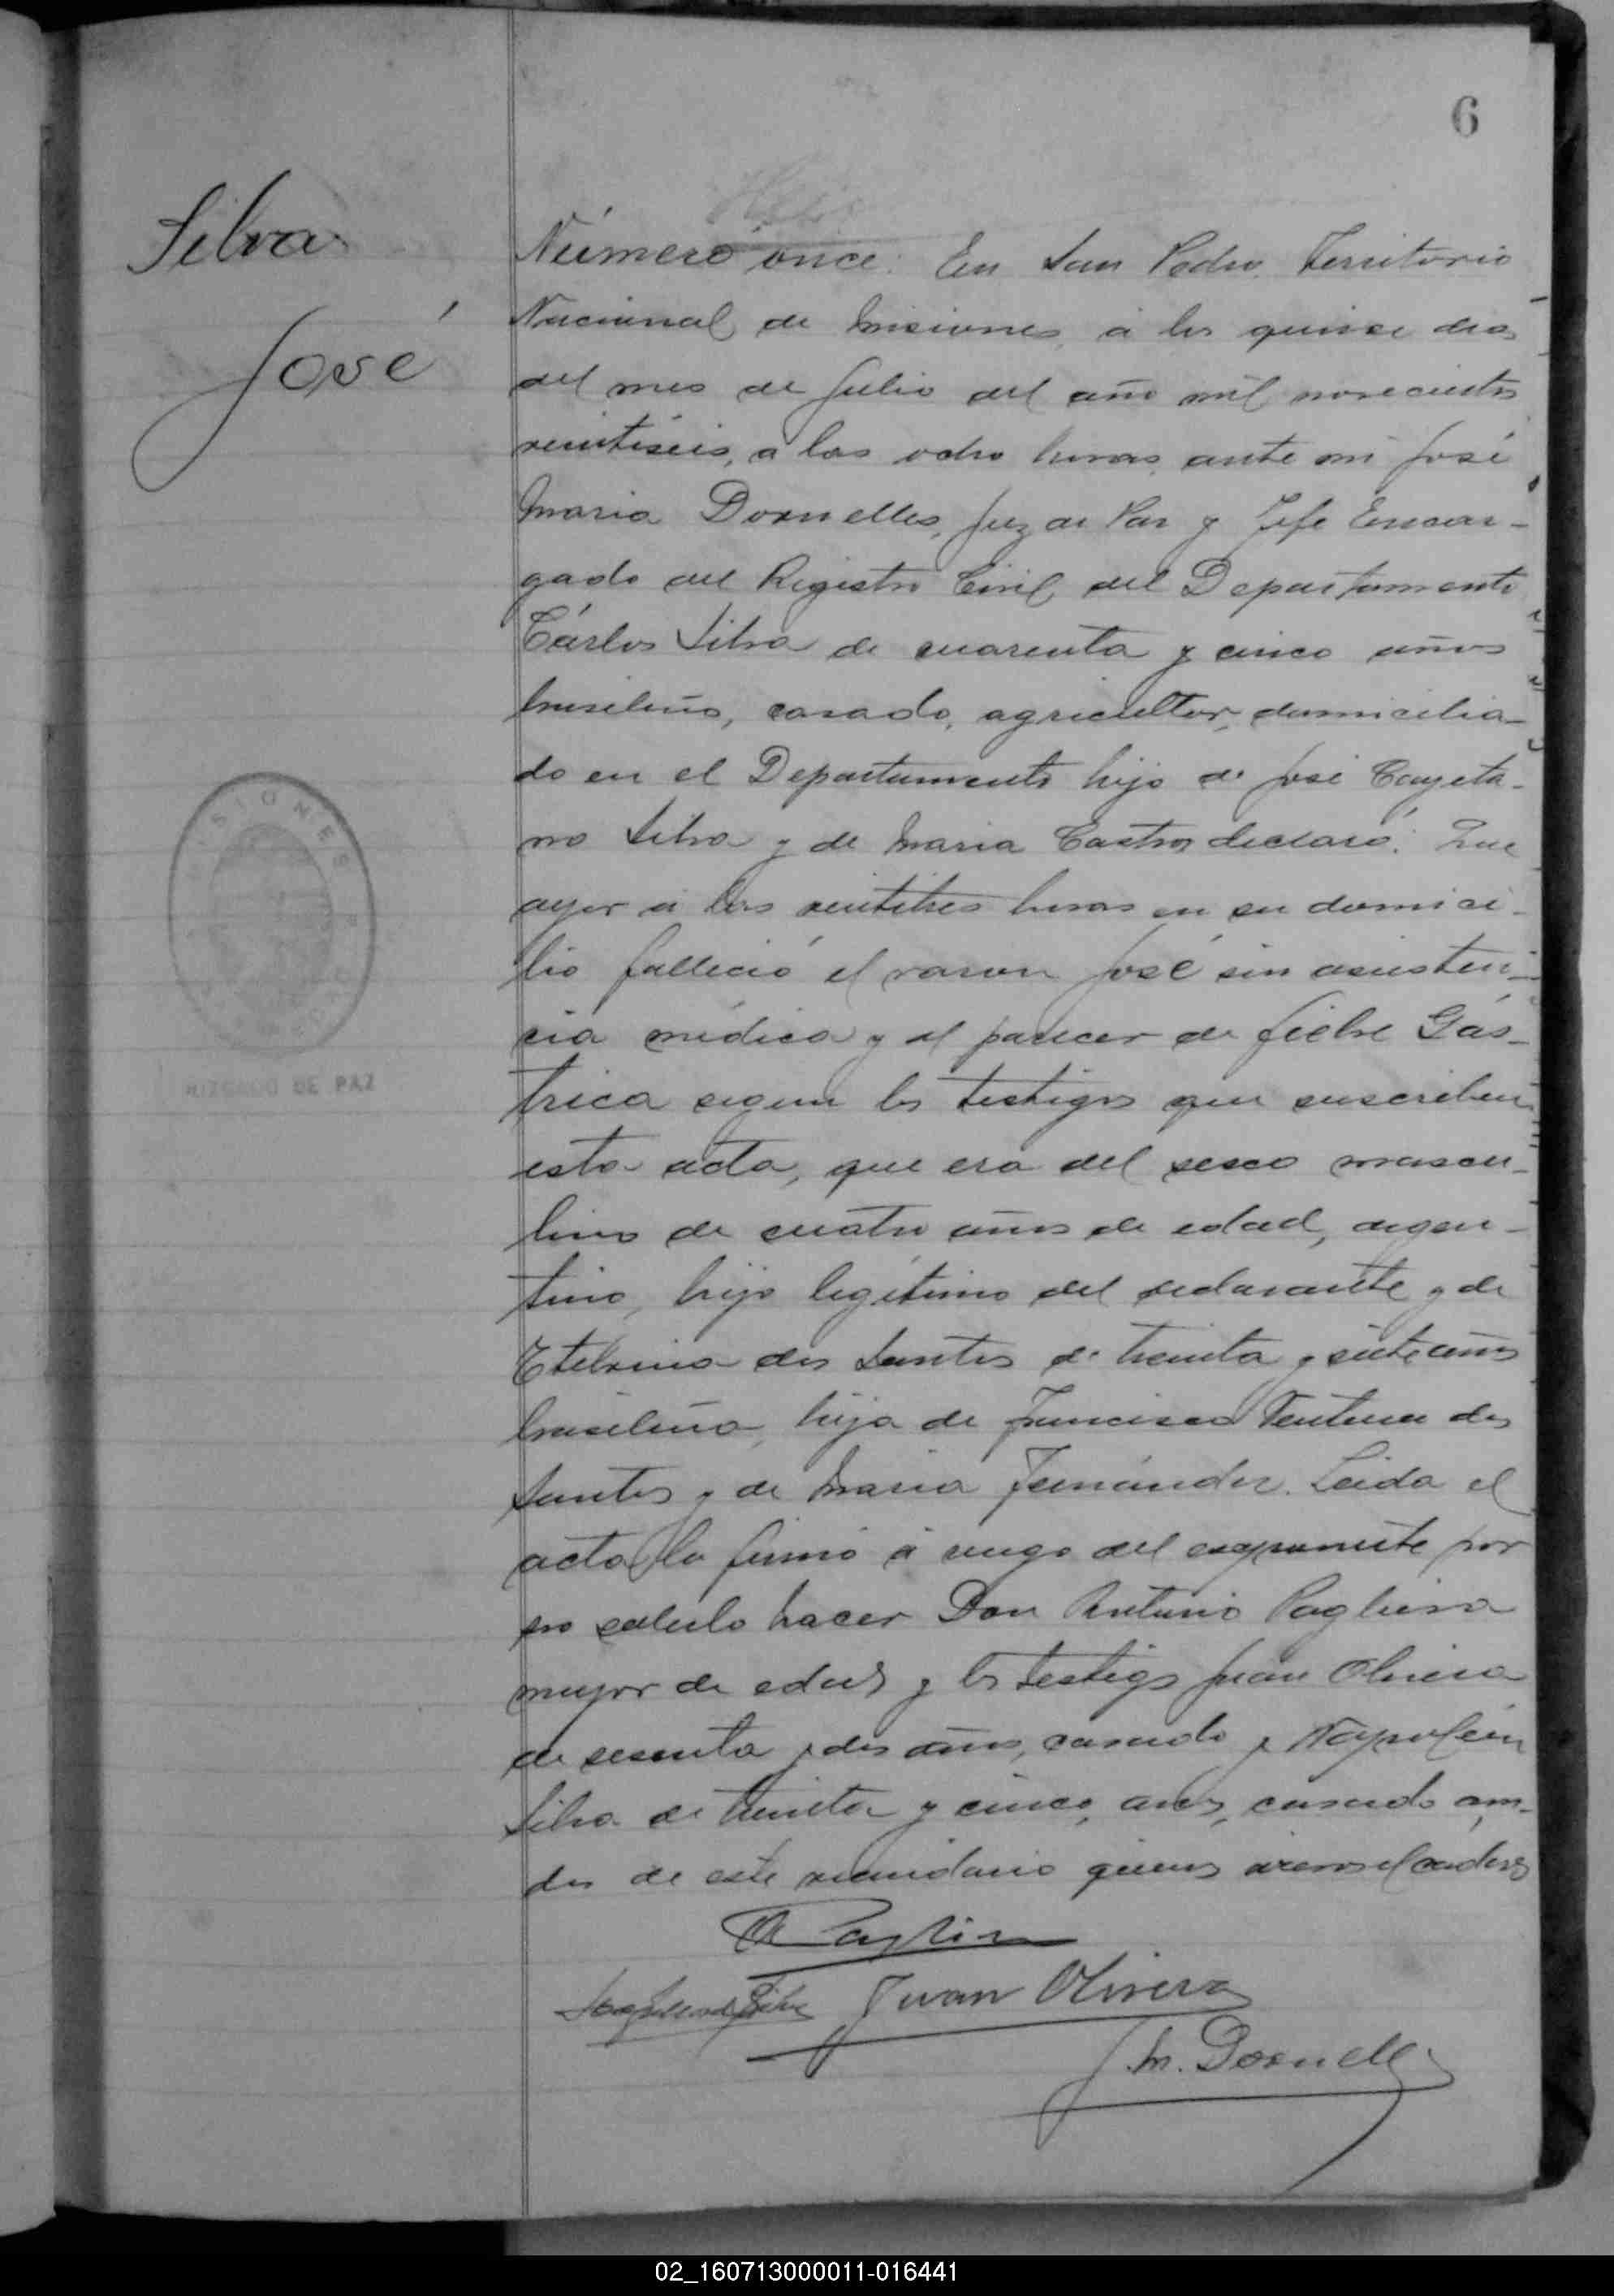 6
Silva
José
Número once. En San Pedro, Territorio
Nacional de Misiones, á los quince dias
del mes de Julio del año mil novecientos
veintiseis, a las ocho horas, ante mi José
Maria Dornelles, Juez de Paz y Jefe Encar-
gado del Registro Civil del Departamento
Cárlos Silva de cuarenta y cinco años
brasileño, casado, agricultor, domicilia-
do en el Departamento hijo de José Cayeta-
no Silva y de Maria Castro, declaró: Que
ayer a las veintitres horas en su domici-
lio falleció el varon José sin asisten-
cia médica y al parecer de fiebre Gás-
trica segun los testigos que suscriben
esta acta, que era del sexo mascu-
lino de cuatro años de edad, argen-
tino, hijo legítimo del declarante y de
Etelvina dos Santos de treinta y siete años
brasileña, hija de Francisco Ventura dos
Santos y de Maria Fernández. Leida el
acta la firmó á ruego del exponente por
no saberlo hacer Don Antonio Pagliera
mayor de edad y los testigos Juan Olivera
de sesenta y dos años, casado y Napoleón
Silva de treinta y cinco años, casado am-
bos de este vecindario quienes vieron el cadaver
Juan Olivera
J. M. Dornelles
MISIONES
JUZGADO DE PAZ
02_160713000011-016441